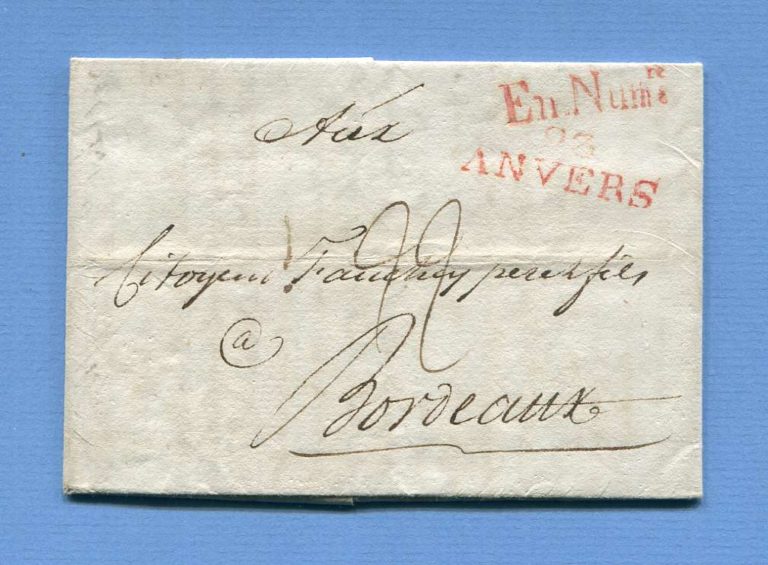 En Num.re
93
ANVERS
Aux
Citoyens père & fils
@
Bordeaux